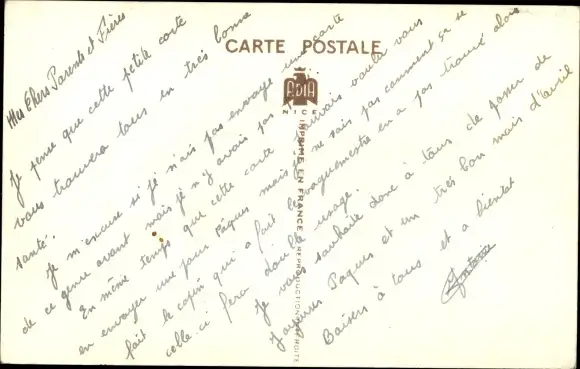 CARTE POSTALE
ADIA
NICE
IMPRIMÉ EN FRANCE
REPRODUCTION INTERDITE
Mes Chers Parents et Frères
Je pense que cette petite carte
vous trouvera tous en très bonne
santé.
Je m'excuse si je n'ai pas envoyé une carte
de ce genre avant mais je n'y avais pas
En même temps que cette carte j'aurais voulu vous
en envoyer une pour Pâques mais je ne sais pas comment ça se
fait le copin qui a fait le vaguemestre en a pas trouvé alors
celle-ci fera double usage.
Je vous souhaite donc à tous de passer de
Joyeuses Paques et un très bon mois d'avril
Baisers à tous et a bientot